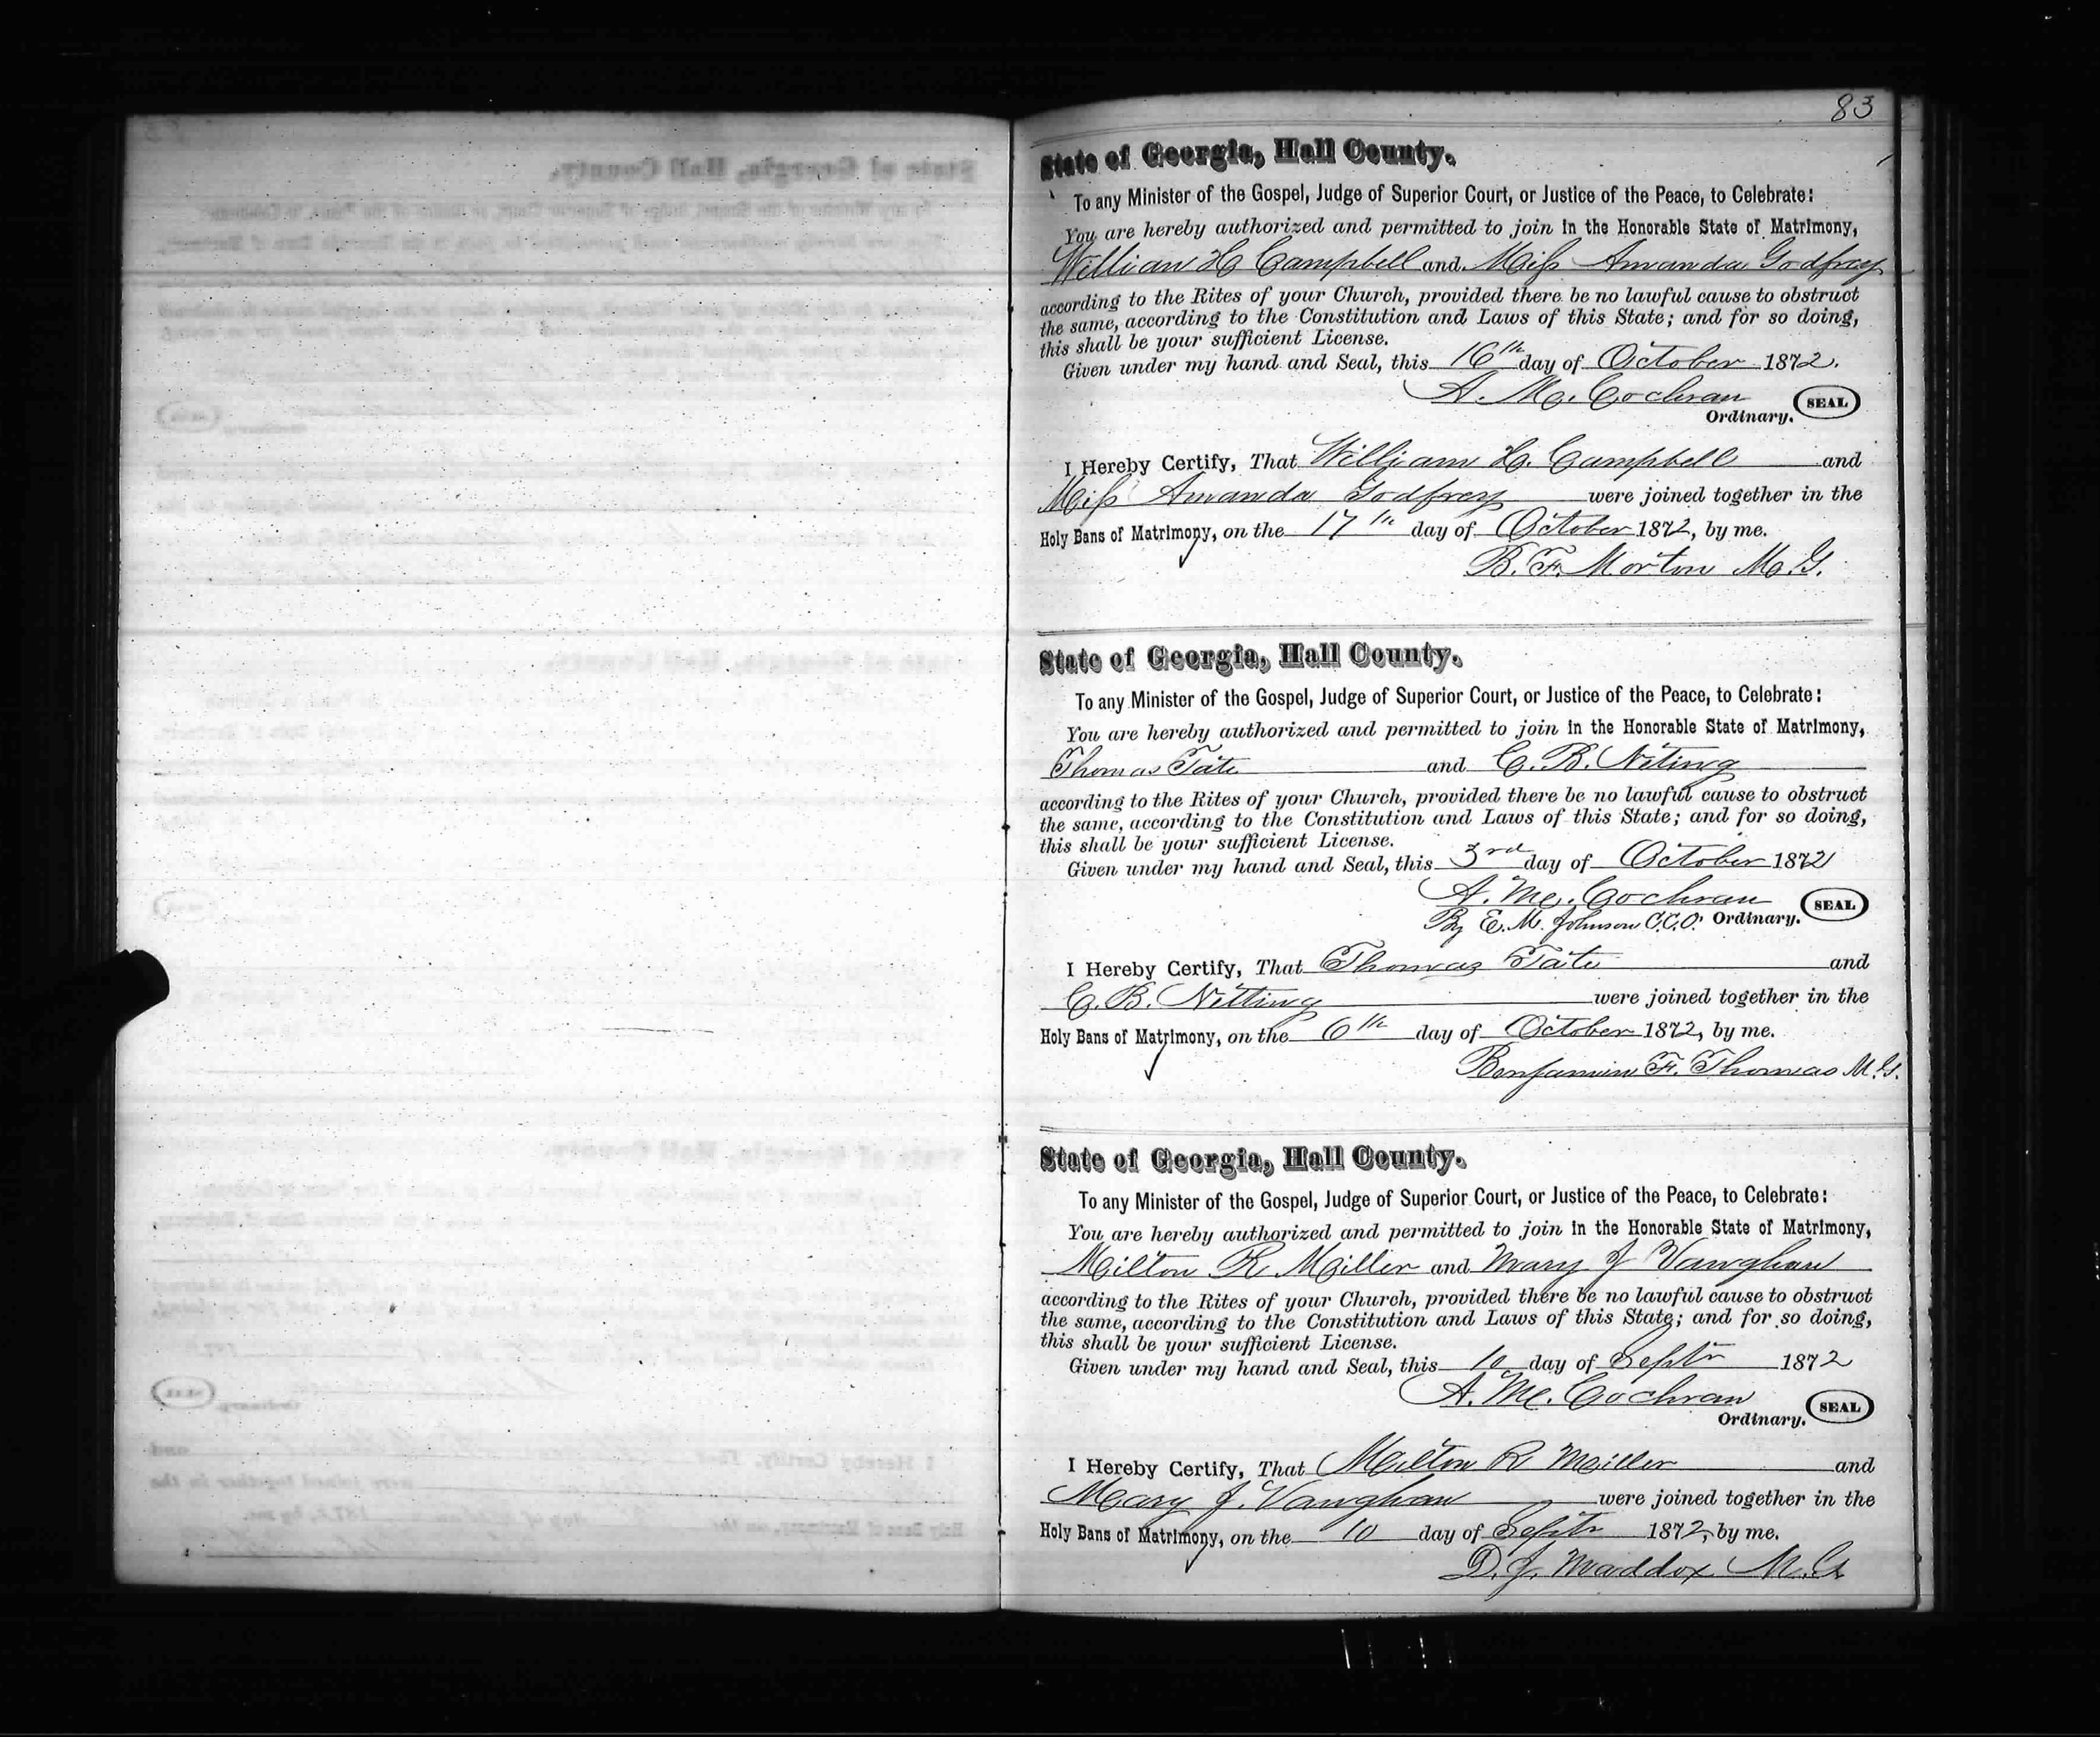 83
State of Georgia, Hall County.
To any Minister of the Gospel, Judge of Superior Court, or Justice of the Peace, to Celebrate:
You are hereby authorized and permitted to join in the Honorable State of Matrimony,
William H Campbell and Miss Amanda Godfrey
according to the Rites of your Church, provided there be no lawful cause to obstruct
the same, according to the Constitution and Laws of this State; and for so doing,
this shall be your sufficient License.
Given under my hand and Seal, this 16th day of October 1872.
A. M. Cochran
Ordinary. SEAL
I Hereby Certify, That William H. Campbell and
Miss Amanda Godfrey were joined together in the
Holy Bans of Matrimony, on the 17th day of October 1872, by me.
B. F. Morton M.G.
State of Georgia, Hall County.
To any Minister of the Gospel, Judge of Superior Court, or Justice of the Peace, to Celebrate:
You are hereby authorized and permitted to join in the Honorable State of Matrimony,
Thomas Tate and C. B. Niting
according to the Rites of your Church, provided there be no lawful cause to obstruct
the same, according to the Constitution and Laws of this State; and for so doing,
this shall be your sufficient License.
Given under my hand and Seal, this 3rd day of October 1872
A. Mc. Cochran
By E. M. Johnson C.C.O. Ordinary. SEAL
I Hereby Certify, That Thomas Tate and
C. B. Nitting were joined together in the
Holy Bans of Matrimony, on the 6th day of October 1872, by me.
Benjamin F. Thomas M.G.
State of Georgia, Hall County.
To any Minister of the Gospel, Judge of Superior Court, or Justice of the Peace, to Celebrate:
You are hereby authorized and permitted to join in the Honorable State of Matrimony,
Milton R Miller and Mary J Vaughan
according to the Rites of your Church, provided there be no lawful cause to obstruct
the same, according to the Constitution and Laws of this State; and for so doing,
this shall be your sufficient License.
Given under my hand and Seal, this 10 day of Septr 1872
A. Mc. Cochran
Ordinary. SEAL
I Hereby Certify, That Milton R Miller and
Mary J. Vaughan were joined together in the
Holy Bans of Matrimony, on the 10 day of Septr 1872, by me.
D. J. Maddox M.G.